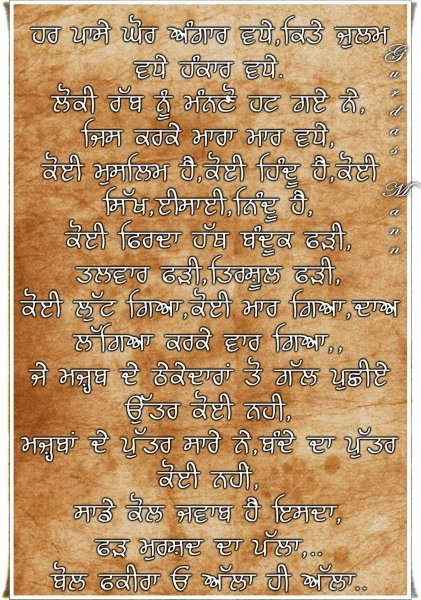 ਹਰ ਪਾਸੇ ਘੋਰ ਅੰਗਾਰ ਵਧੇ,ਕਿਤੇ ਜ਼ੁਲਮ
ਵਧੇ ਹੰਕਾਰ ਵਧੇ.
ਲੋਕੀ ਰੱਬ ਨੂੰ ਮੰਨਣੋ ਹਟ ਗਏ ਨੇ,
ਜਿਸ ਕਰਕੇ ਮਾਰਾ ਮਾਰ ਵਧੇ,
ਕੋਈ ਮੁਸਲਿਮ ਹੈ,ਕੋਈ ਹਿੰਦੂ ਹੈ,ਕੋਈ
ਸਿੱਖ,ਈਸਾਈ,ਨਿੰਦੂ ਹੈ,
ਕੋਈ ਫਿਰਦਾ ਹੱਥ ਬੰਦੂਕ ਫੜੀ,
ਤਲਵਾਰ ਫੜੀ,ਤਿਰਸ਼ੂਲ ਫੜੀ,
ਕੋਈ ਲੁੱਟ ਗਿਆ,ਕੋਈ ਮਾਰ ਗਿਆ,ਦਾਅ
ਲੱਗਿਆ ਕਰਕੇ ਵਾਰ ਗਿਆ,,
ਜੇ ਮਜ਼੍ਹਬ ਦੇ ਠੇਕੇਦਾਰਾਂ ਤੋ ਗੱਲ ਪੁਛੀਏ
ਉੱਤਰ ਕੋਈ ਨਹੀ,
ਮਜ਼੍ਹਬਾਂ ਦੇ ਪੁੱਤਰ ਸਾਰੇ ਨੇ,ਬੰਦੇ ਦਾ ਪੁੱਤਰ
ਕੋਈ ਨਹੀਂ,
ਸਾਡੇ ਕੋਲ ਜਵਾਬ ਹੈ ਇਸਦਾ,
ਫੜ ਮੁਰਸ਼ਦ ਦਾ ਪੱਲਾ,..
ਬੋਲ ਫਕੀਰਾ ਓ ਅੱਲਾ ਹੀ ਅੱਲਾ..
Gurdas Mann